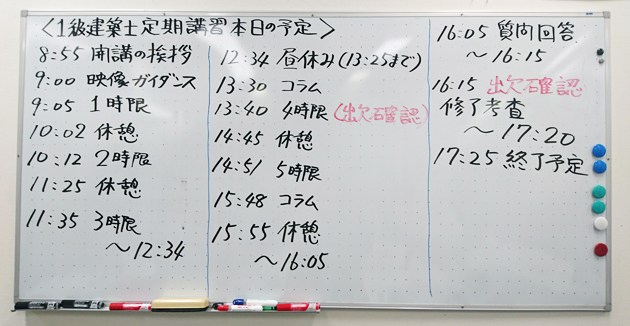 〈1級建築士定期講習本日の予定〉
8:55 開講の挨拶
9:00 映像ガイダンス
9:05 1時限
10:02 休憩
10:12 2時限
11:25 休憩
11:35 3時限
〜12:34
12:34 昼休み(13:25まで)
13:30 コラム
13:40 4時限(出欠確認)
14:45 休憩
14:51 5時限
15:48 コラム
15:55 休憩
〜16:05
16:05 質問回答
〜16:15
16:15 出欠確認
修了考査
〜17:20
17:25 終了予定